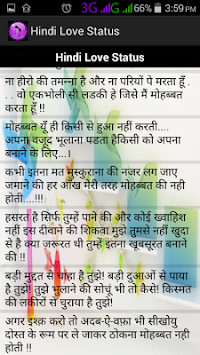 3G 4G 69% 3:59 PM
Hindi Love Status
Hindi Love Status
ना हीरो की तमन्ना है और ना परियों पे मरता हूँ .
. . वो एकभोली सी लडकी है जिसे मैं मोहब्बत
करता हूँ !!
मोहब्बत यूँ ही किसी से हुआ नहीं करती....
अपना वजूद भूलाना पडता हैकिसी को अपना
बनाने के लिए...।
कभी इतना मत मुस्कुराना की नजर लग जाए
जमाने की हर आँख मेरी तरह मोहब्बत की नही
होती....!!!
हसरत है सिर्फ तुम्हें पाने की और कोई ख्वाहिश
नहीं इस दीवाने की शिकवा मुझे तुमसे नहीं खुदा
से है क्या ज़रूरत थी तुम्हें इतना खूबसूरत बनाने
की !!
बड़ी मुद्दत से चाहा है तुझे! बड़ी दुआओं से पाया
है तुझे! तुझे भुलाने की सोचूं भी तो कैसे! किस्मत
की लकीरों से चुराया है तुझे!
अगर इश्क़ करो तो अदब-ऐ-वफ़ा भी सीखोयु
दोस्त के रूप मर ले जाकर ठोकना मोहब्बत नही
होती .!!!